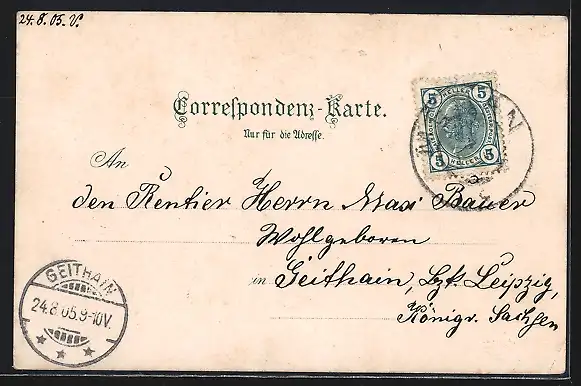 24.8.05.V.
Correspondenz-Karte.
Nur für die Adresse.
5 HELLER 5
5 HELLER 5
An
den Rentier Herrn Maxi Bauer
Wohlgeboren
in Geithain, Bzk. Leipzig,
Königr. Sachsen
GEITHAIN
24.8.05.9-10V.